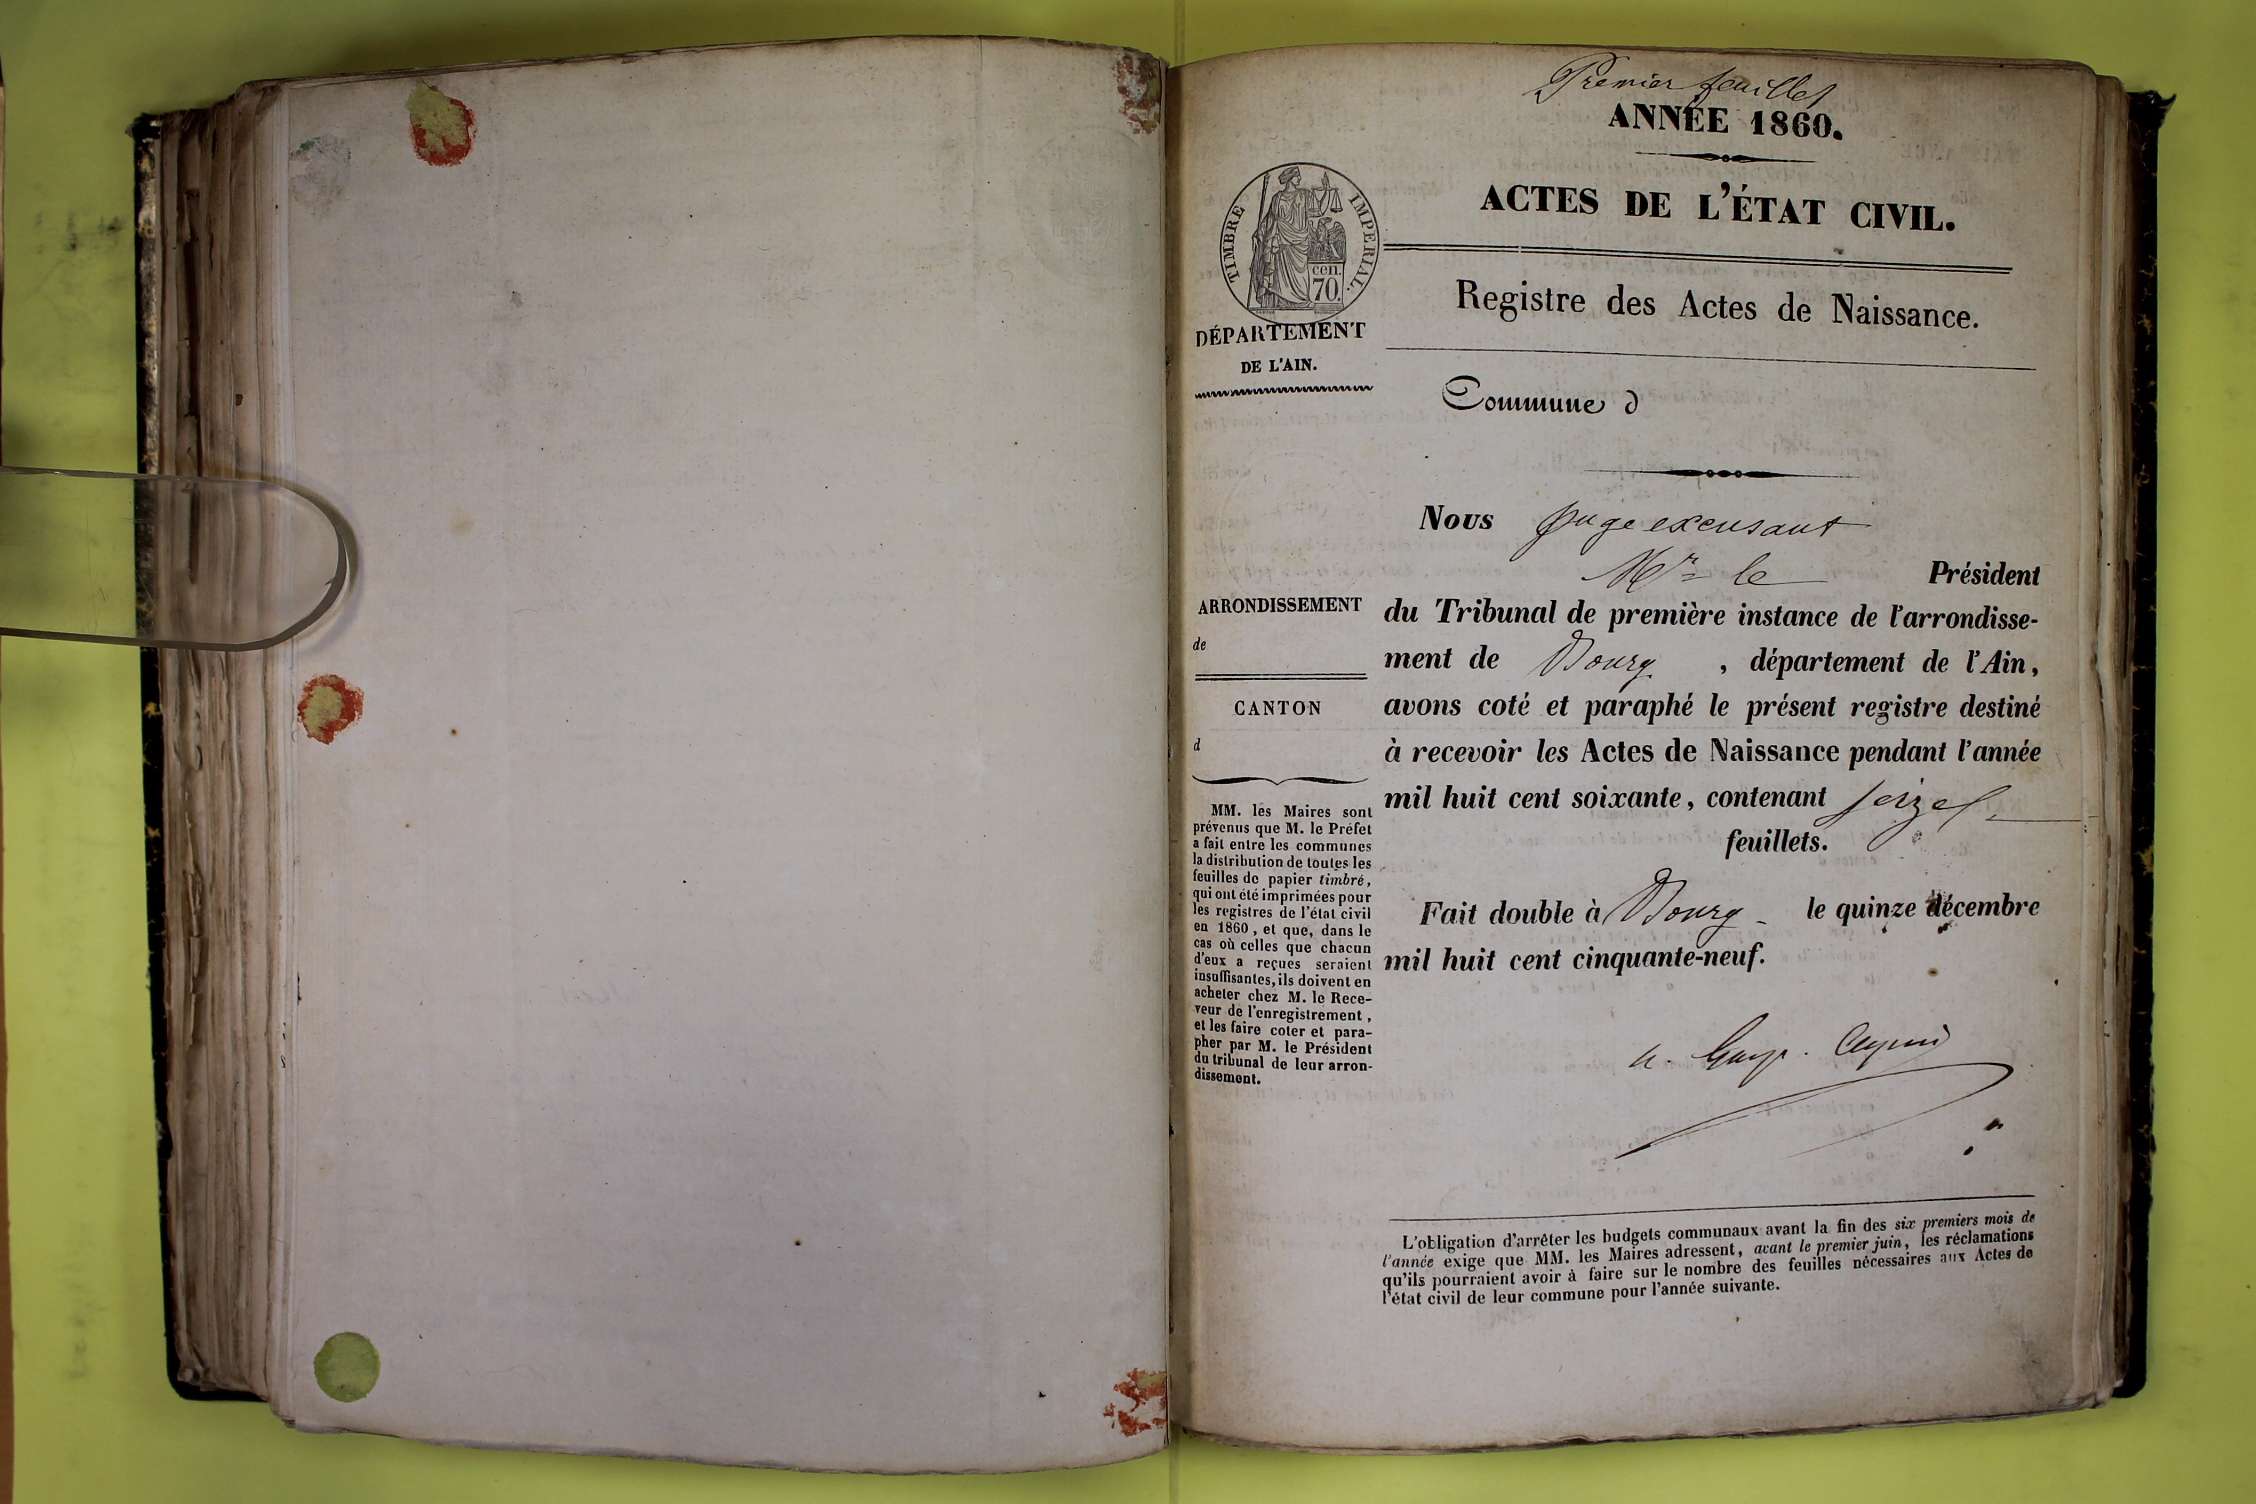 Premier feuillet
ANNÉE 1860.
ACTES DE L'ÉTAT CIVIL.
TIMBRE IMPERIAL.
cen.
70.
DÉPARTEMENT
DE L'AIN.
Registre des Actes de Naissance.
Commune d
Nous Juge excusant
Mr le Président
du Tribunal de première instance de l'arrondisse-
ment de Bourg , département de l'Ain,
avons coté et paraphé le présent registre destiné
à recevoir les Actes de Naissance pendant l'année
mil huit cent soixante, contenant seize
feuillets.
Fait double à Bourg le quinze décembre
mil huit cent cinquante-neuf.
ARRONDISSEMENT
de
CANTON
d
MM. les Maires sont
prévenus que M. le Préfet
a fait entre les communes
la distribution de toutes les
feuilles de papier timbré,
qui ont été imprimées pour
les registres de l'état civil
en 1860, et que, dans le
cas où celles que chacun
d'eux a reçues seraient
insuffisantes, ils doivent en
acheter chez M. le Rece-
veur de l'enregistrement,
et les faire coter et para-
pher par M. le Président
du tribunal de leur arron-
dissement.
L'obligation d'arrêter les budgets communaux avant la fin des six premiers mois de
l'année exige que MM. les Maires adressent, avant le premier juin, les réclamations
qu'ils pourraient avoir à faire sur le nombre des feuilles nécessaires aux Actes de
l'état civil de leur commune pour l'année suivante.